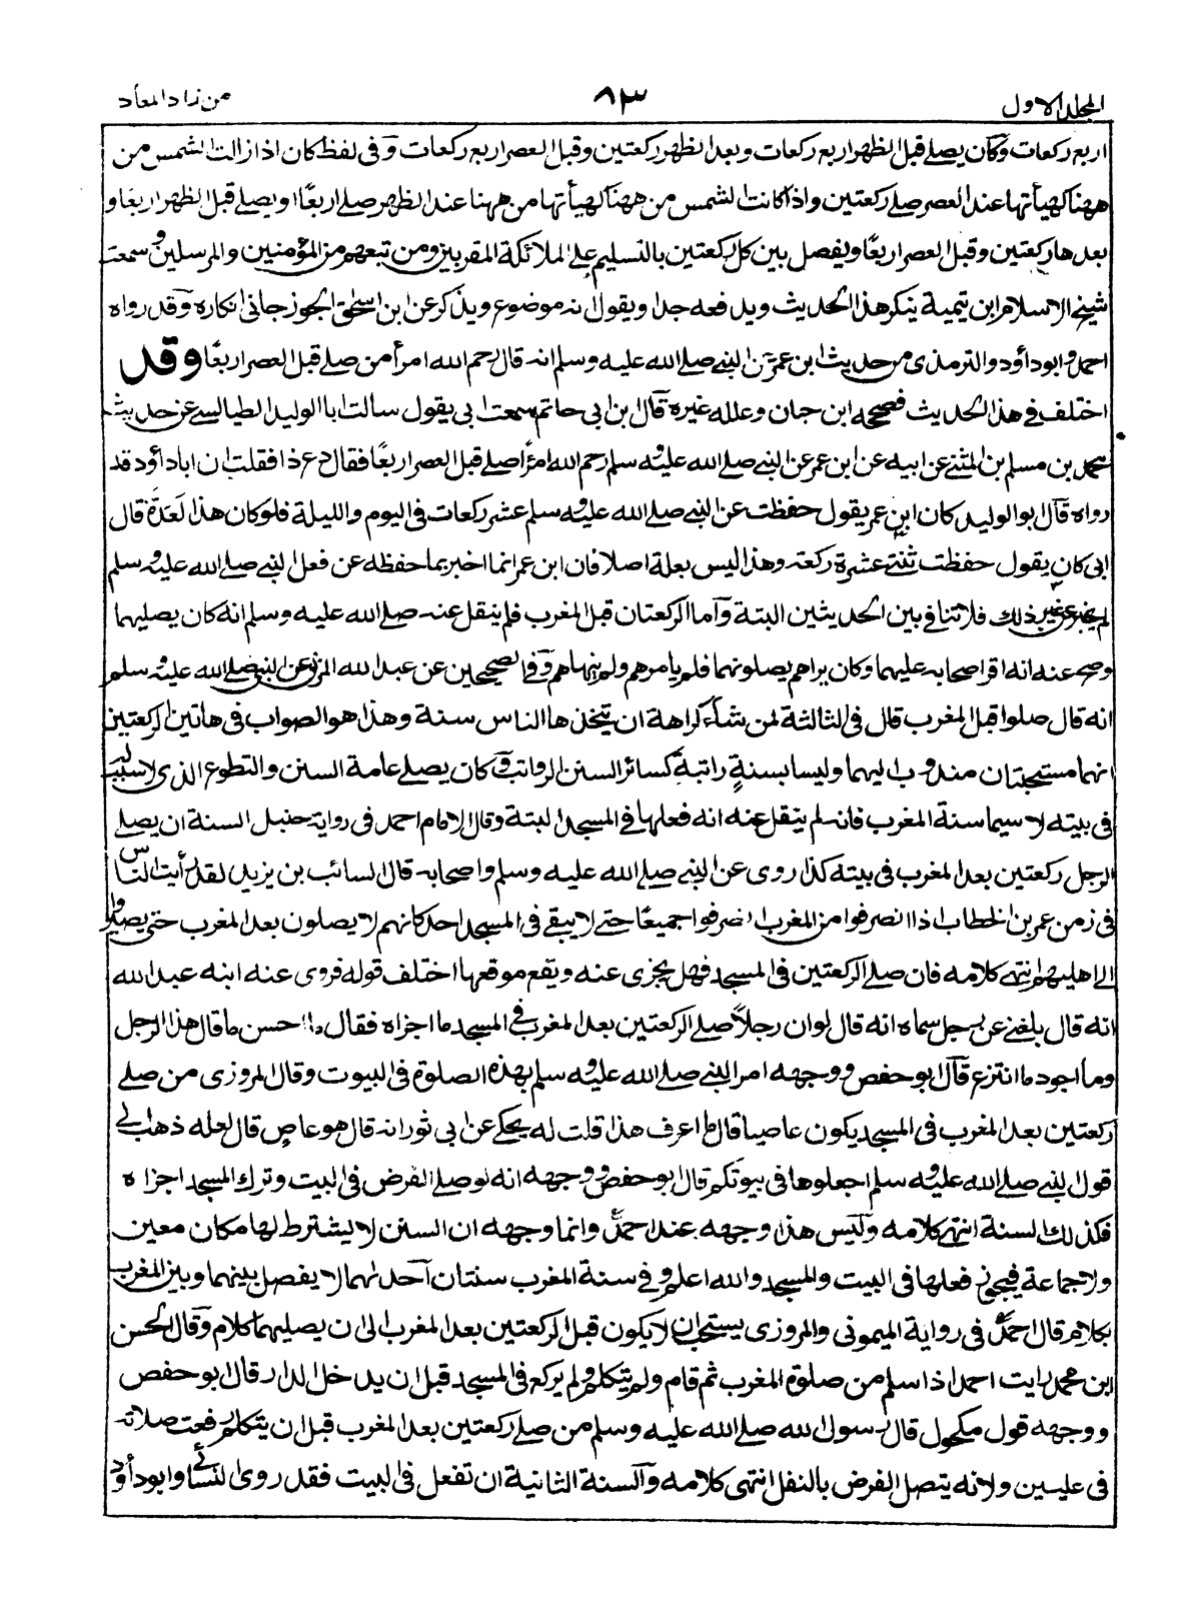 المجلد الاول
٨٣
من زاد المعاد
اربع ركعات وكان يصلے قبل الظهر اربع ركعات وبعد الظهر ركعتين وقبل العصر اربع ركعات وفى لفظ كان اذا زالت الشمس من
ههنا كهيأتها عند العصر صلے ركعتين واذا كانت الشمس من ههنا كهيأتها من ههنا عند الظهر صلے اربعًا ويصلے قبل الظهر اربعًا و
بعدها ركعتين وقبل العصر اربعًا ويفصل بين كل ركعتين بالتسليم علے الملائكة المقربين ومن تبعهم من المؤمنين والمرسلين وسمعت
شيخ الاسلام ابن تيمية ينكر هذا الحديث ويدفعه جدا ويقول انه موضوع ويذكر عن ابن اسحٰق الجوزجانى انكاره وقد رواه
احمد وابوداؤد والترمذى من حديث ابن عمر عن النبى صلے الله عليه وسلم انه قال رحم الله امرأ من صلے قبل العصر اربعًا وقد
اختلف فى هذا الحديث فصححه ابن حبان وعلله غيره قال ابن ابى حاتم سمعت ابى يقول سالت ابا الوليد الطيالسے عن حديث
محمد بن مسلم بن المثنى عن ابيه عن ابن عمر عن النبى صلے الله عليه وسلم رحم الله امرأ صلے قبل العصر اربعًا فقال دع ذا فقلت ان اباداؤد قد
رواه قال ابوالوليد كان ابن عمر يقول حفظت عن النبى صلے الله عليه وسلم عشر ركعات فى اليوم والليلة فلوكان هذا لَعَدَّهٗ قال
ابى كان يقول حفظت ثنتے عشرة ركعة وهذا ليس بعلة اصلا فان ابن عمر انما اخبر بما حفظه عن فعل النبى صلے الله عليه وسلم
لم يخبر عن غير ذلك فلا تنافى بين الحديثين البتة واما الركعتان قبل المغرب فلم ينقل عنه صلے الله عليه وسلم انه كان يصليهما
وصح عنه انه اقر اصحابه عليهما وكان يراهم يصلونهما فلم يامرهم ولم ينهاهم وفى الصحيحين عن عبد الله المزنى عن النبى صلے الله عليه وسلم
انه قال صلوا قبل المغرب قال فى الثالثة لمن شاء كراهة ان يتخذها الناس سنة وهذا هو الصواب فى هاتين الركعتين
انهما مستحبتان مندوب اليهما وليسا بسنةٍ راتبةٍ كسائر السنن الرواتب وكان يصلے عامة السنن والتطوع الذى لا سبب له
فى بيته لا سيما سنة المغرب فانه لم ينقل عنه انه فعلها فى المسجد البتة وقال الامام احمد فى رواية حنبل السنة ان يصلے
الرجل ركعتين بعد المغرب فى بيته كذا روى عن النبى صلے الله عليه وسلم واصحابه قال السائب بن يزيد لقد رأيت الناس
فى زمن عمر بن الخطاب اذا انصرفوا من المغرب انصرفوا جميعًا حتے لا يبقے فى المسجد احد كانهم لا يصلون بعد المغرب حتى يصيروا
الى اهليهم انتهے كلامه فان صلے الركعتين فى المسجد فهل يجزى عنه ويقع موقعها اختلف قوله فروى عنه ابنه عبد الله
انه قال بلغنے عن رجل سماه انه قال لوان رجلًا صلے الركعتين بعد المغرب فى المسجد ما اجزاه فقال ما احسن ماقال هذا الرجل
وما اجود ما انتزع قال ابو حفص ووجهه امر النبى صلے الله عليه وسلم بهذه الصلوة فى البيوت وقال المروزى من صلے
ركعتين بعد المغرب فى المسجد يكون عاصيا قال ما اعرف هذا قلت له يحكے عن ابى ثور انه قال هو عاصٍ قال لعله ذهب الى
قول النبى صلے الله عليه وسلم اجعلوها فى بيوتكم قال ابو حفص ووجهه انه لوصلے الفرض فى البيت وترك المسجد اجزاه
فكذلك السنة انتهے كلامه وليس هذا وجهه عند احمد وانما وجهه ان السنن لا يشترط لها مكان معين
ولا جماعة فيجوز فعلها فى البيت والمسجد والله اعلم وفى سنة المغرب سنتان احدٰهما لا يفصل بينهما وبين المغرب
بكلام قال احمد فى رواية الميمونى والمروزى يستحب ان لا يكون قبل الركعتين بعد المغرب الى ان يصليهما كلام وقال الحسن
ابن محمد رايت احمد اذا سلم من صلوة المغرب ثم قام ولم يتكلم ولم يركع فى المسجد قبل ان يدخل الدار قال ابو حفص
ووجهه قول مكحول قال رسول الله صلے الله عليه وسلم من صلے ركعتين بعد المغرب قبل ان يتكلم رفعت صلاته
فى عليين ولانه يتصل الفرض بالنفل انتهى كلامه والسنة الثانية ان تفعل فى البيت فقد روى النسائى وابوداؤد